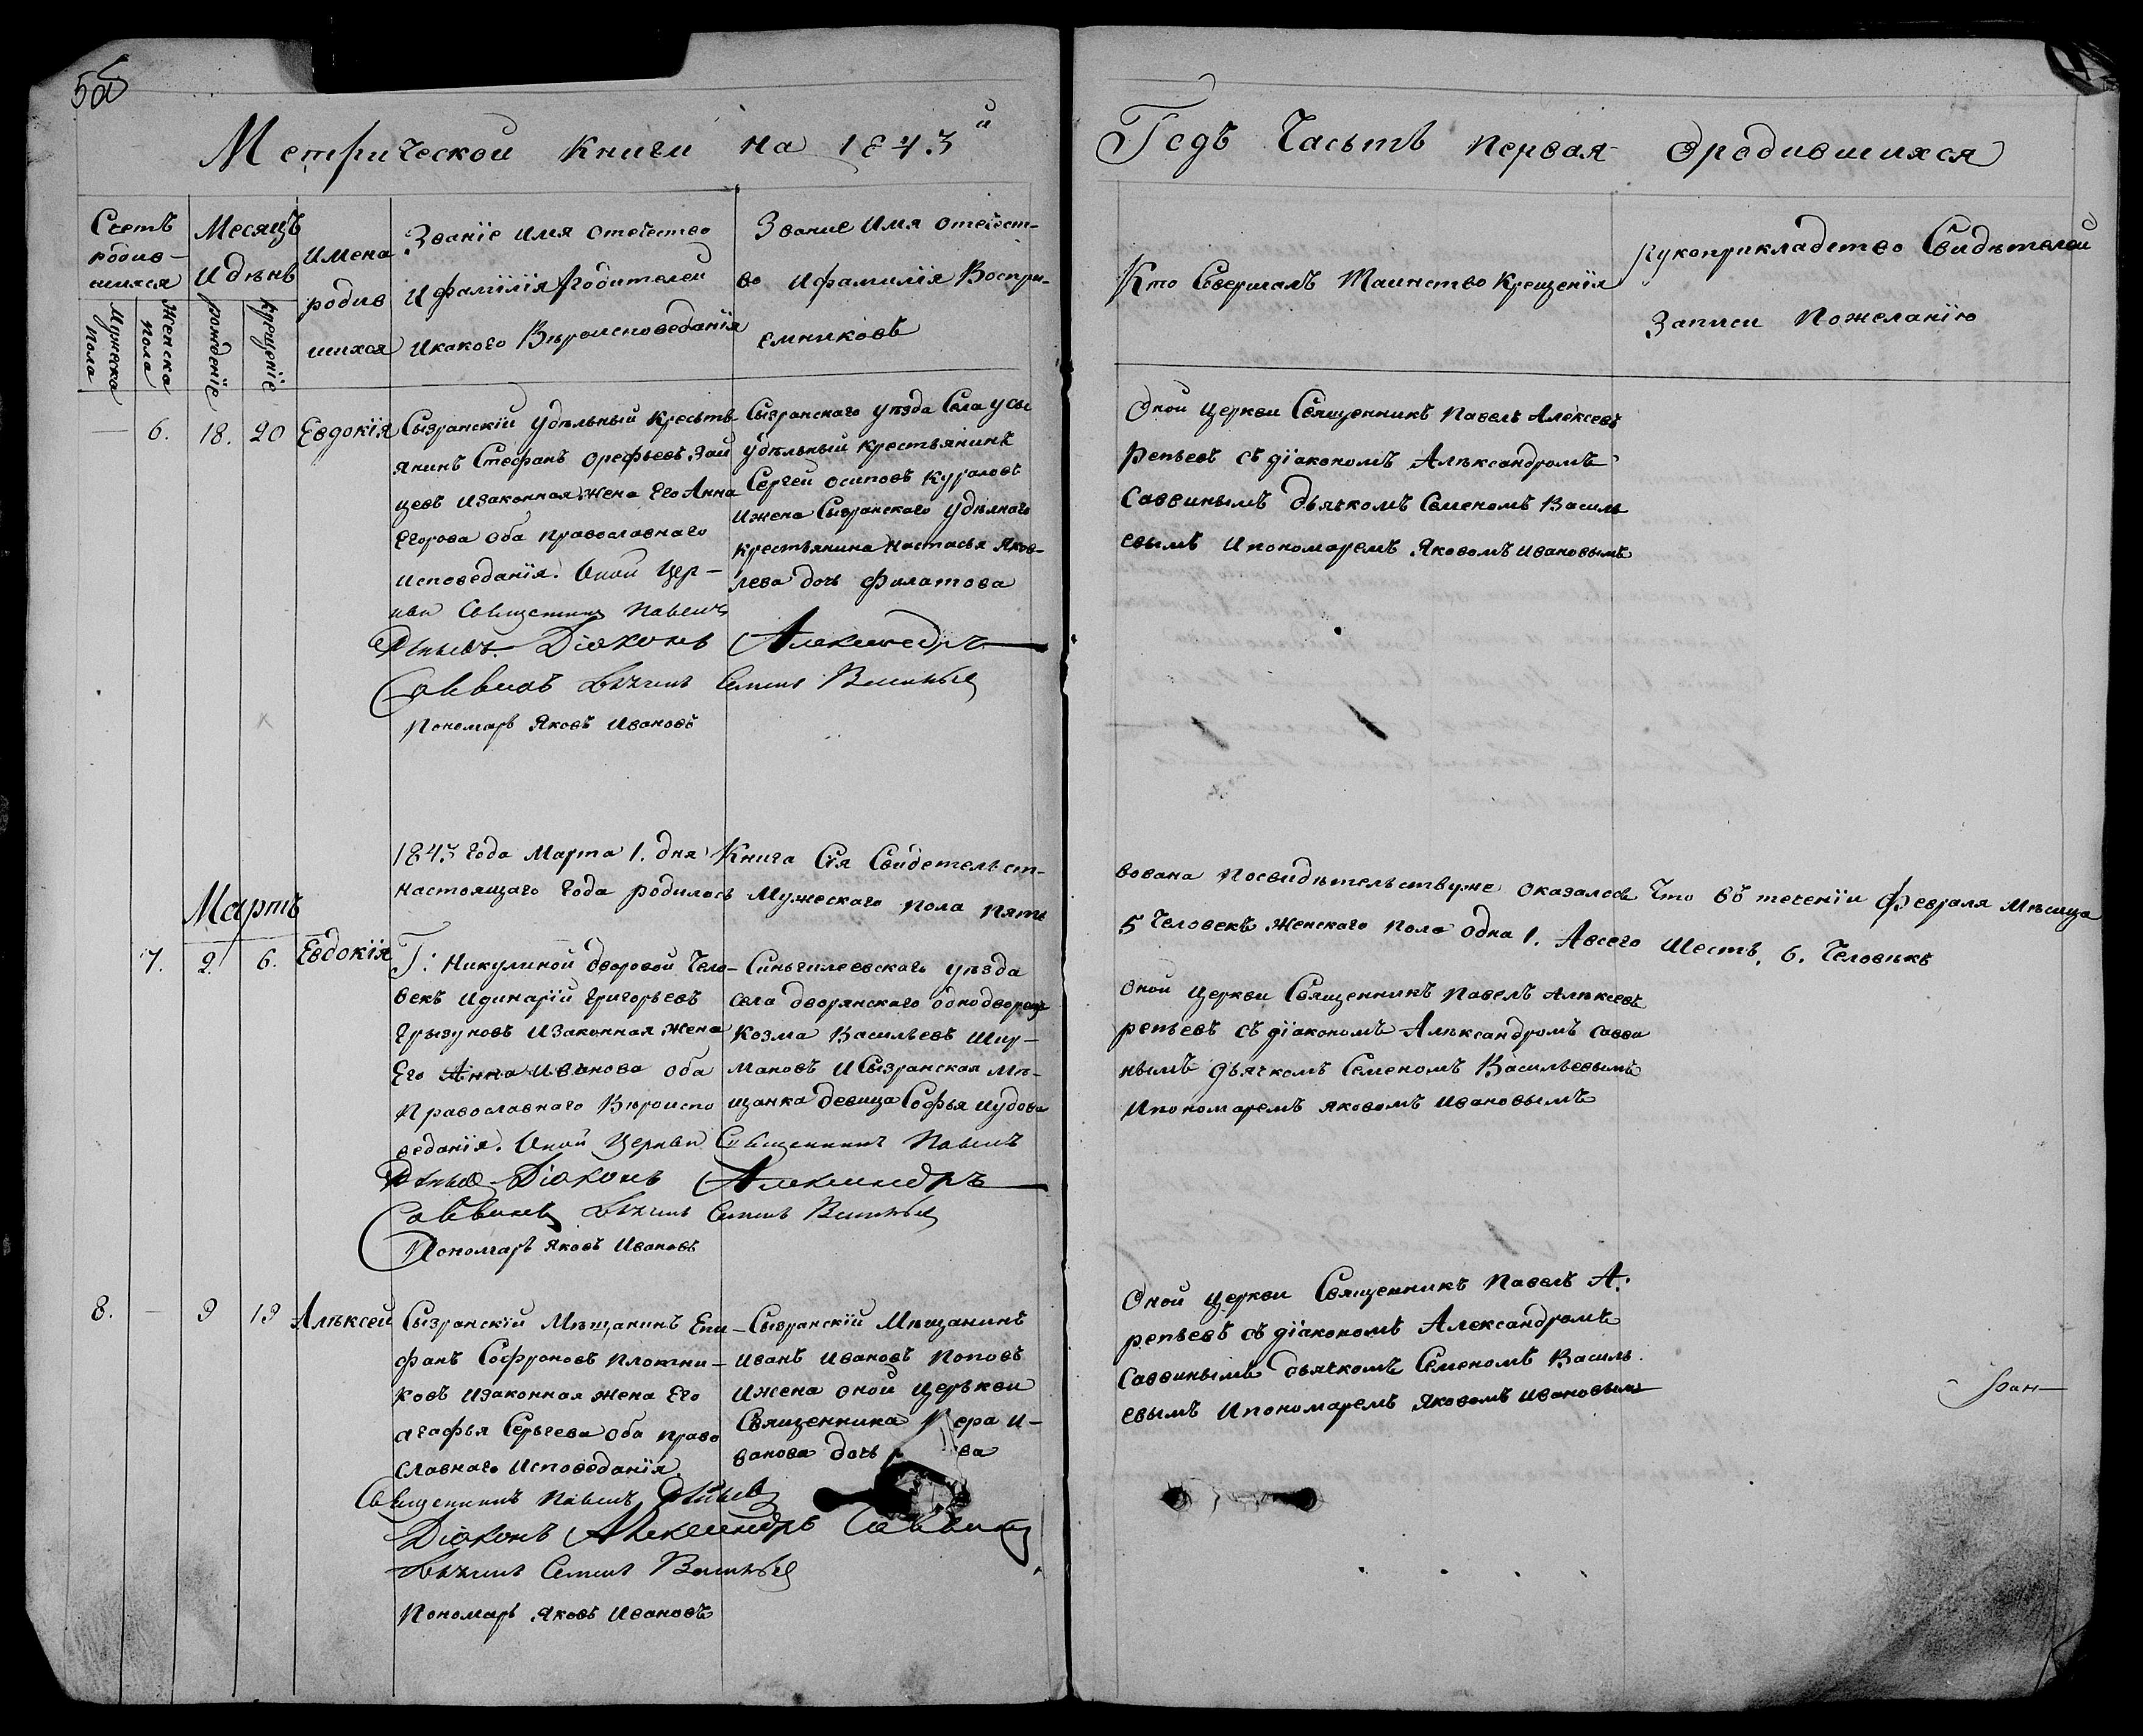 Метрической книги на 1843й
Годъ Часьть первая о родившихся
Счетъ родив-
шихся
Мужеска пола
Женска пола
Месяцъ
и дѣнь
рождѣніе
крещеніе
имена
родив
шихся
Званіе имя отечество
и фамілія родителей
и какого Вѣроисповеданія
Звание Имя отечест-
во и фамилія Воспри-
емниковъ
Кто Совершалъ Таинство Крещенія
рукоприкладство Свидѣтелей
Записи По желанію
6. 18. 20 Евдокія
Сызранскій удѣльный Кресьтъ
янинъ Стефанъ Орефьевъ Зай
цевъ и законная жена его Анна
Егорова оба православнаго
исповеданія. Оной Цер-
кви Священникъ Павелъ
Репьевъ. Діаконъ Александръ
Саввинъ Дьячекъ Семенъ Васильевъ
Пономарь Яковъ Ивановъ
Сызранскаго уѣзда Села усы
удѣльный крестьянинъ
Сергей осиповъ Кураловъ
и жена Сызранскаго удѣлнаго
крестьянина настасья Яков-
лева дочь Филатова
Оной церкви Священникъ Павелъ Алексевъ
Репьевъ съ діакономъ Алѣксандромъ
Саввинымъ дьячкомъ Семеномъ Василь
евымъ и пономаремъ Яковомъ ивановымъ
1843 года Марта 1. дня Книга Сія Свидетельст-
вована по свидѣтельству же оказалось Что въ течении Февраля Мѣсяца
настоящаго года родилось Мужескаго пола пять
5 Человекъ женскаго пола одна 1. А всего Шесть, 6. Человѣкъ
Мартъ
7. 2. 6. Евдокія
Г: Никулиной дворовой Чело-
векъ Идинарій Григорьевъ
Грызуновъ и законная жена
его Анна Иванова оба
Православнаго Вѣроиспо
веданія. Оной Церкви Священникъ Павелъ
Репьевъ Діаконъ Александръ
Саввинъ Дьячекъ Семенъ Васильевъ
Пономарь Яковъ Ивановъ
Синьгилеевскаго уѣзда
села дворянскаго однодворецъ
Козма Васильевъ Шир-
мановъ и Сызранская Мѣ-
щанка девица Софья Иудова
Оной церкви Священникъ Павелъ Алѣксевъ
репьевъ съ діакономъ Алѣксандромъ Савви
нымъ дьячкомъ Семеномъ Васильевымъ
и пономаремъ Яковомъ ивановымъ
8. — 9 13 Алѣксей
Сызранскій Мѣщанинъ Епи-
фанъ Софроновъ плотни-
ковъ и законная жена его
агафья Сергеева оба право
славнаго исповеданія.
Священникъ Павелъ Репьевъ
Діаконъ Александръ Саввинъ
Дьячекъ Семенъ Васильевъ
Пономарь Яковъ Ивановъ
Сызранскій Мѣщанинъ
иванъ ивановъ поповъ
и жена оной церькви
Священника Вера и-
ванова дочь ва
Оной церкви Священникъ Павелъ А:
репьевъ съ діакономъ Александромъ
Саввинымъ дьячкомъ Семеномъ Василь
евымъ и пономаремъ Яковомъ ивановымъ